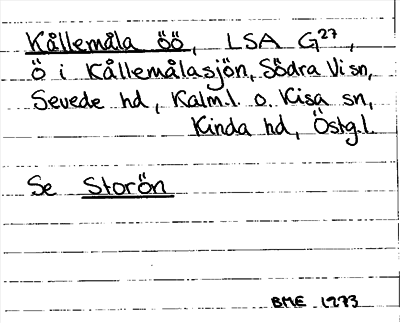 Kållemåla öö, LSA G27,
ö i Kållemålasjön, Södra Vi sn,
Sevede hd, Kalm.l. o. Kisa sn,
Kinda hd, Östg.l.
Se Storön
BME 1973